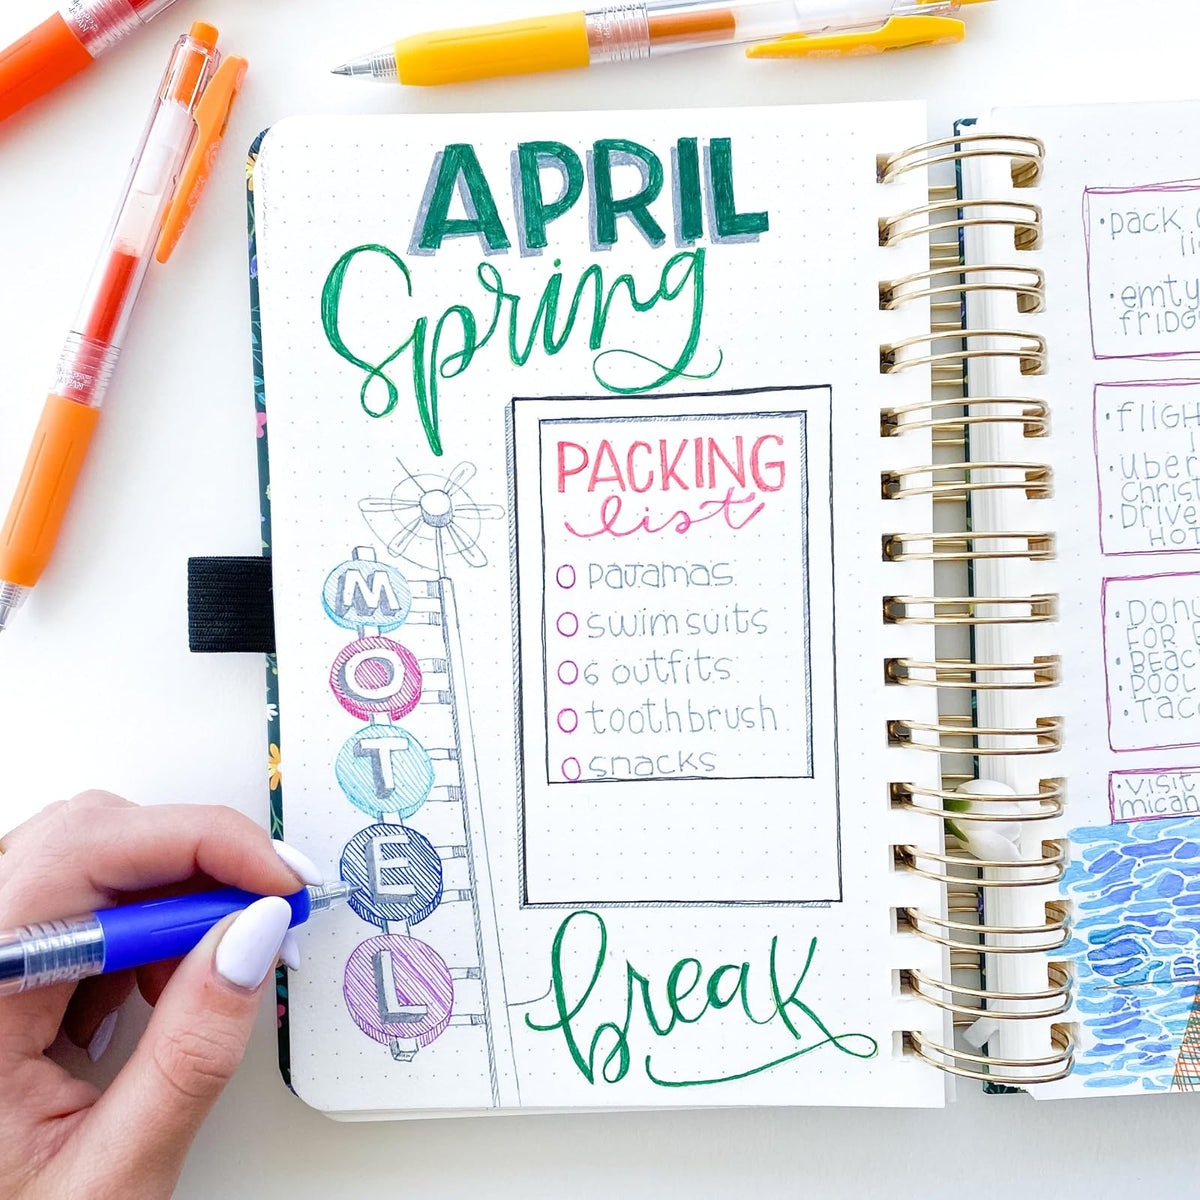 APRIL
Spring
PACKING
list
Pajamas
swimsuits
6 outfits
toothbrush
snacks
MOTEL
break
• pack
• emty
fridg
• fligh
• uber
Christ
• Drive
Hot
• Donu
For
• Beac
• Pool
• Tac
• visit
micah